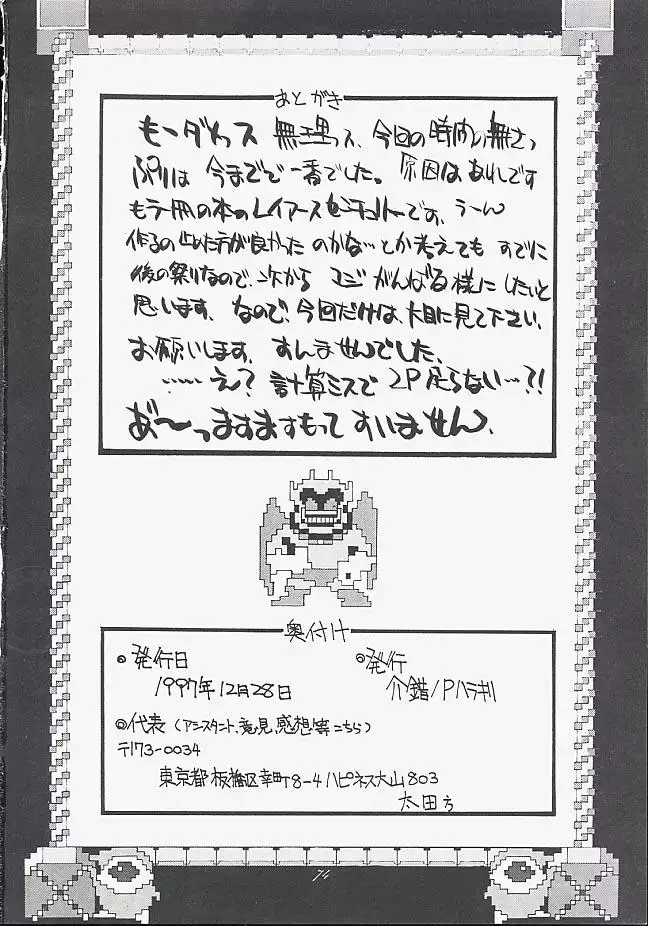 あとがき
もーダめっス 無理っス、今回の時間の無さっ
ぷりは 今までで一番でした。原因はあれです
もう一冊の本のレイアース です、うーん
作るの止めた方が良かった のかな…とか考えても すでに
後の祭りなので、次から マジ がんばる様に したいと
思います、なので、今回だけは、大目に見て下さい、
お願いします、すんませんでした、
……え？ 計算ミスで 2P足らない…？！
あ゛〜っますますもって すいません、
奥付け
◎発行日
1997年12月28日
◎発行
介錯/Pハラキリ
◎代表（アシスタント,意見,感想等こちら）
〒173-0034
東京都板橋区幸町8-4ハピネス大山803
太田方
74